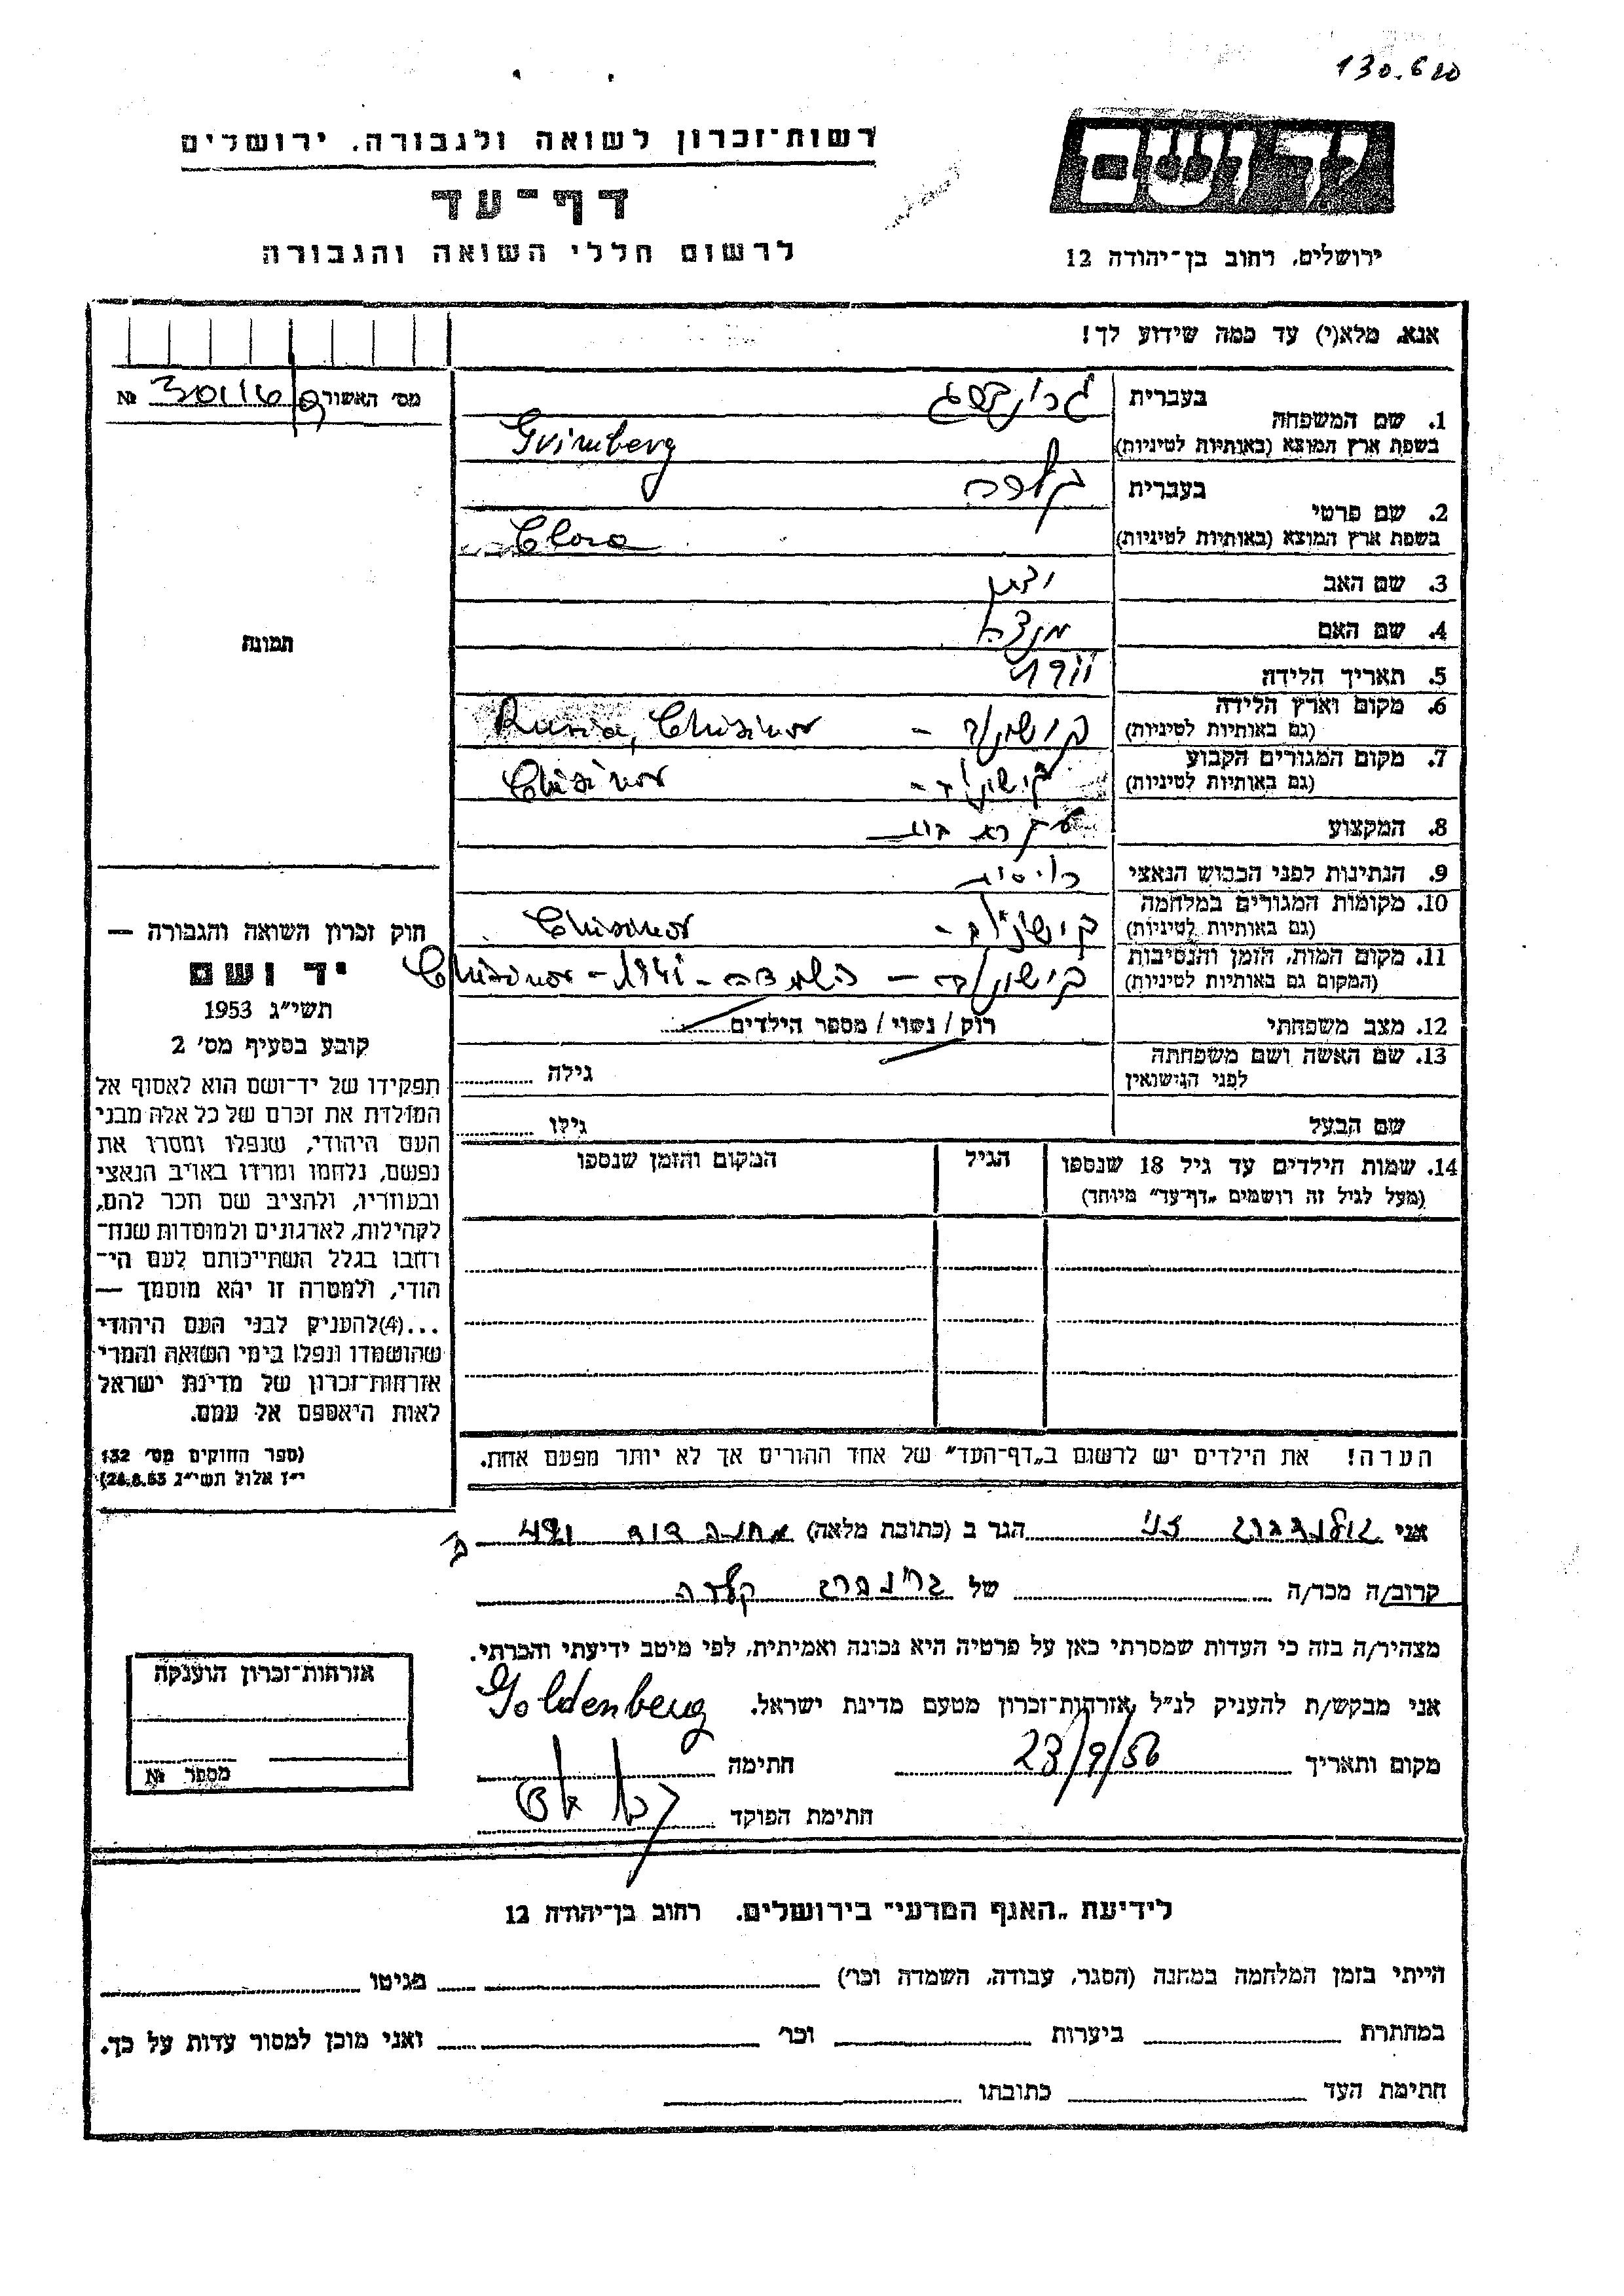 130.620
רשות-זכרון לשואה ולגבורה, ירושלים
דף-עד
לרשום חללי השואה והגבורה
ידושם
ירושלים, רחוב בן-יהודה 12
אנא, מלא(י) עד כמה שידוע לך!
מס' האשור № 30116
1. שם המשפחה
בעברית גרינברג
בשפת ארץ המוצא (באותיות לטיניות) Grinberg
2. שם פרטי
בעברית קלרה
בשפת ארץ המוצא (באותיות לטיניות) Clara
3. שם האב
4. שם האם
5. תאריך הלידה 1911
6. מקום וארץ הלידה
(גם באותיות לטיניות) קישינוב - Russia, Chisinov
7. מקום המגורים הקבוע
(גם באותיות לטיניות) קישינוב - Chisinov
8. המקצוע עקרת בית
9. הנתינות לפני הכבוש הנאצי רוסית
10. מקומות המגורים במלחמה
(גם באותיות לטיניות) קישינוב - Chisinov
11. מקום המות, הזמן והנסיבות
(המקום גם באותיות לטיניות) קישינוב - השמדה - 1941 - Chisinov
12. מצב משפחתי רוק / נשוי / מספר הילדים
13. שם האשה ושם משפחתה
לפני הנישואין גילה
שם הבעל גילו
14. שמות הילדים עד גיל 18 שנספו
(מעל לגיל זה רושמים „דף-עד" מיוחד)
הגיל
המקום והזמן שנספו
הערה! את הילדים יש לרשום ב„דף-העד" של אחד ההורים אך לא יותר מפעם אחת.
תמונה
חוק זכרון השואה והגבורה —
יד ושם
תשי"ג 1953
קובע בסעיף מס' 2
תפקידו של יד-ושם הוא לאסוף אל
המולדת את זכרם של כל אלה מבני
העם היהודי, שנפלו ומסרו את
נפשם, נלחמו ומרדו באויב הנאצי
ובעוזריו, ולהציב שם וזכר להם,
לקהילות, לארגונים ולמוסדות שנח-
רבו בגלל השתייכותם לעם הי-
הודי, ולמטרה זו יהא מוסמך —
...(4)להעניק לבני העם היהודי
שהושמדו ונפלו בימי השואה והמרי
אזרחות-זכרון של מדינת ישראל
לאות היאספם אל עמם.
(ספר החוקים מס' 132
י"ז אלול תשי"ג 28.8.53)
אני גולדנברג הגר ב (כתובת מלאה) מחנה דוד 491
קרוב/ה מכר/ה של גרינברג קלרה
מצהיר/ה בזה כי העדות שמסרתי כאן על פרטיה היא נכונה ואמיתית, לפי מיטב ידיעתי והכרתי.
אני מבקש/ת להעניק לנ"ל אזרחות-זכרון מטעם מדינת ישראל.
Goldenberg
מקום ותאריך 23/9/56 חתימה
חתימת הפוקד
אזרחות-זכרון הוענקה
מספר №
לידיעת „האגף המדעי" בירושלים, רחוב בן-יהודה 12
הייתי בזמן המלחמה במחנה (הסגר, עבודה, השמדה וכו') בגיטו
במחתרת ביערות וכו' ואני מוכן למסור עדות על כך.
חתימת העד כתובתו